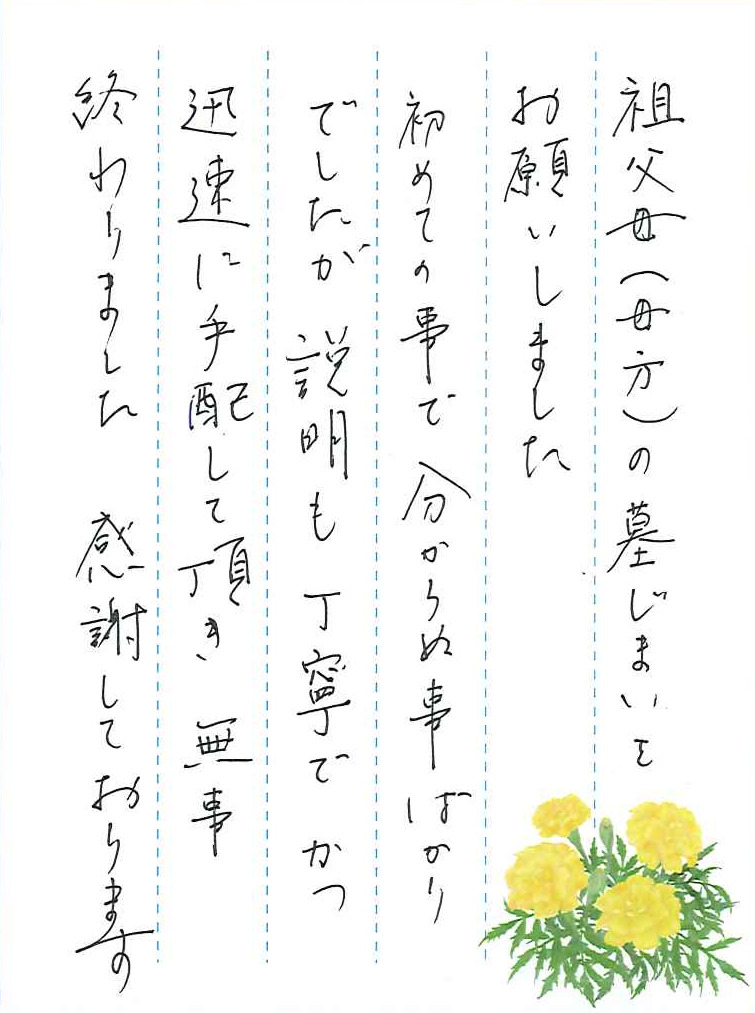 祖父母(母方)の墓じまいを
お願いしました
初めての事で 分からぬ事ばかり
でしたが 説明も 丁寧で かつ
迅速に手配して頂き 無事
終わりました 感謝しております